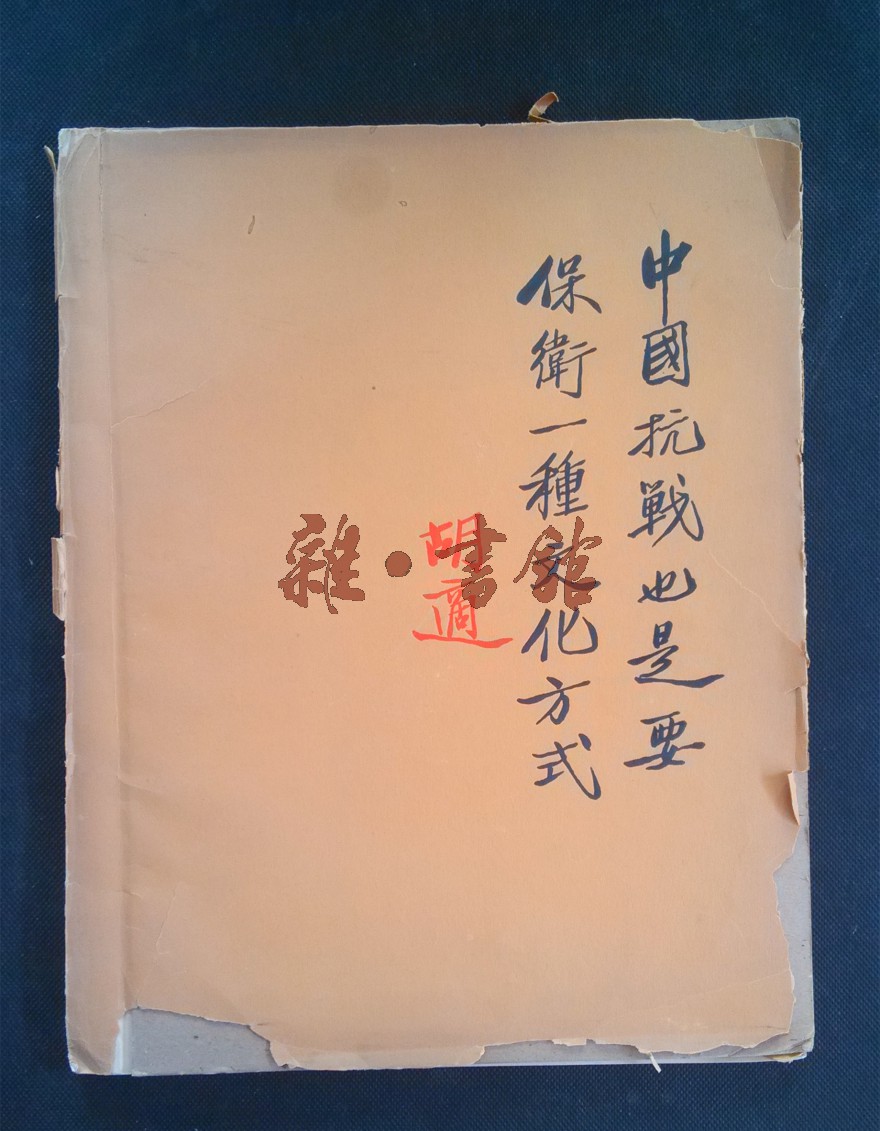 中國抗戰也是要
保衛一種文化方式
胡適
雜·書館